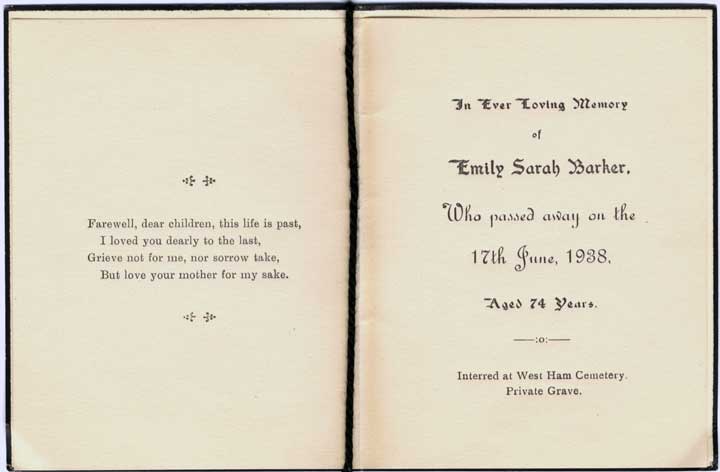 Farewell, dear children, this life is past,
I loved you dearly to the last,
Grieve not for me, nor sorrow take,
But love your mother for my sake.
In Ever Loving Memory
of
Emily Sarah Barker,
Who passed away on the
17th June, 1938,
Aged 74 Years.
——:o:——
Interred at West Ham Cemetery.
Private Grave.